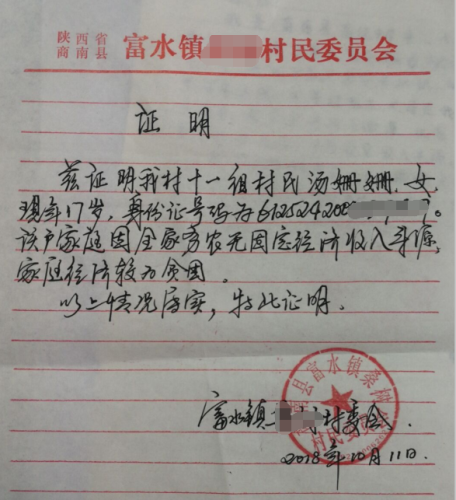 陕西省 商南县 富水镇 村民委员会
证明
兹证明我村十一组村民汤姗姗,女,
现年17岁,身份证号码为612524200
该户家庭因全家务农无固定经济收入来源,
家庭经济较为贫困。
以上情况属实,特此证明。
富水镇 村委会.
2018年10月11日.
县富水镇桑树
村民委员会